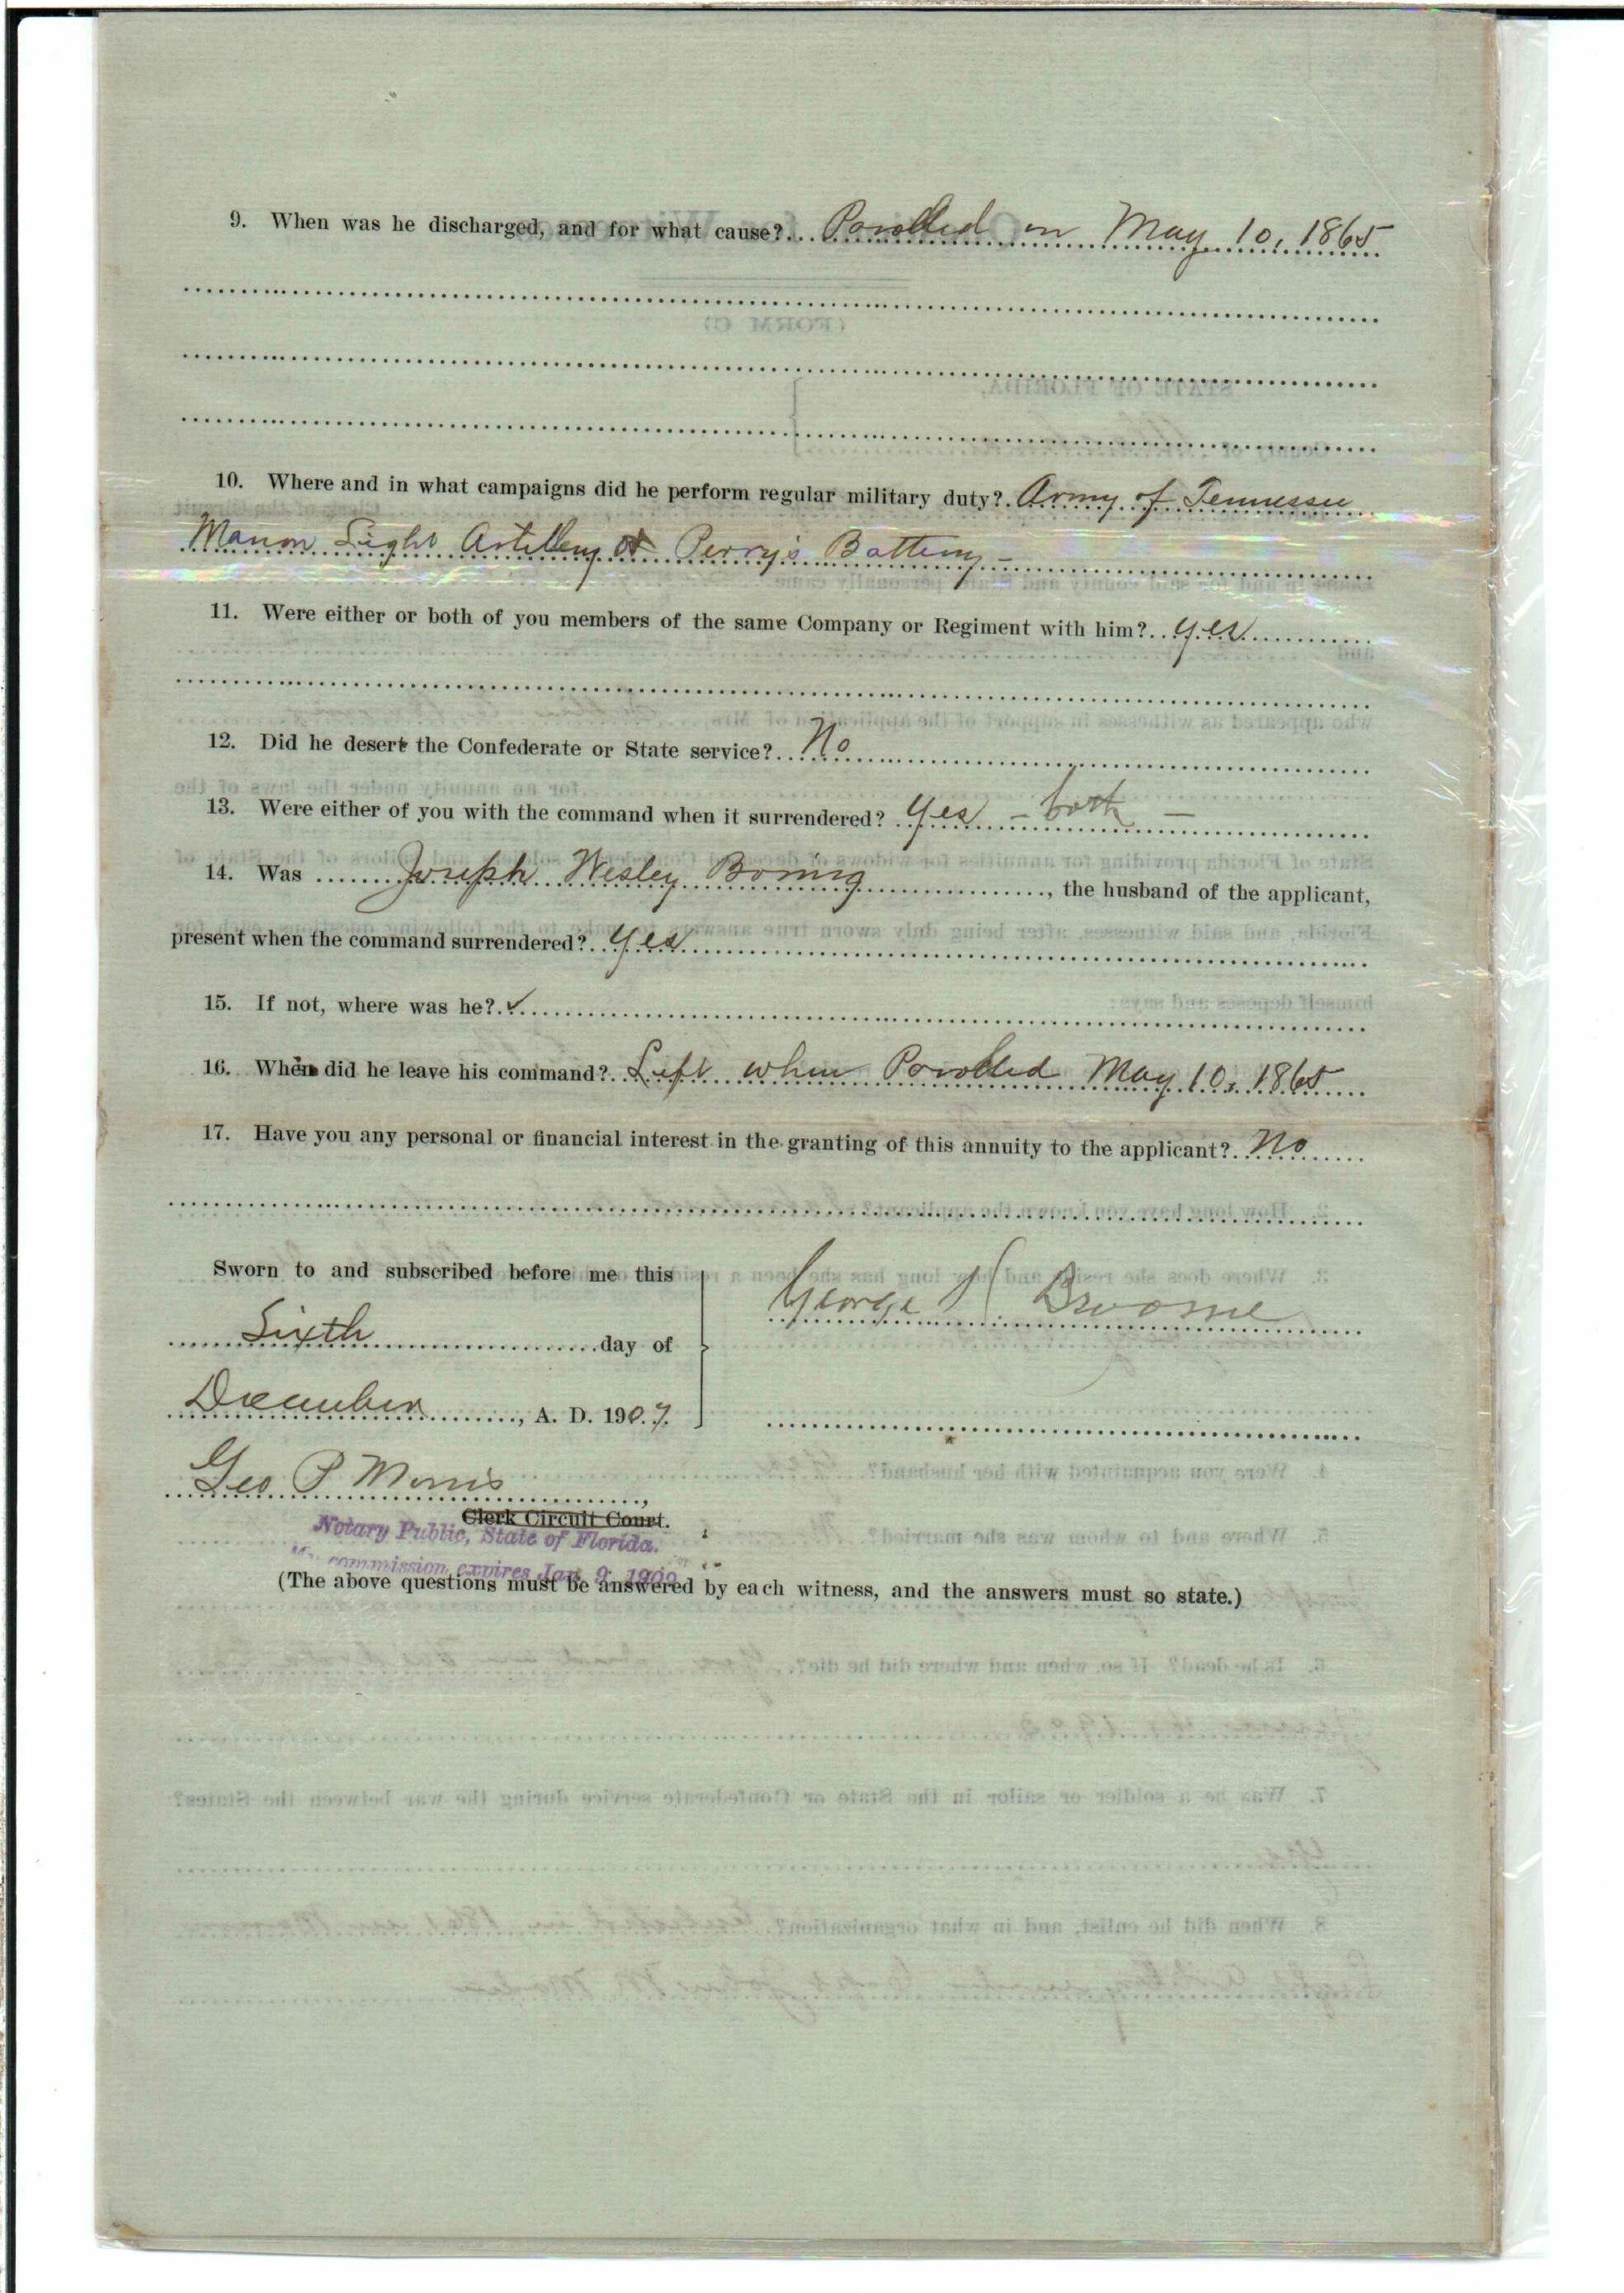 9. When was he discharged, and for what cause? Parolled on May 10, 1865
10. Where and in what campaigns did he perform regular military duty? Army of Tennessee
Marion Light Artillery or Perry's Battery -
11. Were either or both of you members of the same Company or Regiment with him? yes
12. Did he desert the Confederate or State service? No
13. Were either of you with the command when it surrendered? Yes - both -
14. Was Joseph Wesley , the husband of the applicant,
present when the command surrendered? Yes
15. If not, where was he? ✓
16. When did he leave his command? Left when Parolled May 10, 1865
17. Have you any personal or financial interest in the granting of this annuity to the applicant? No
Sworn to and subscribed before me this
George Broome
Sixth day of
December, A. D. 1907.
Geo P Morris,
Clerk Circuit Court.
Notary Public, State of Florida.
My commission expires Jan. 9, 1909
(The above questions must be answered by each witness, and the answers must so state.)